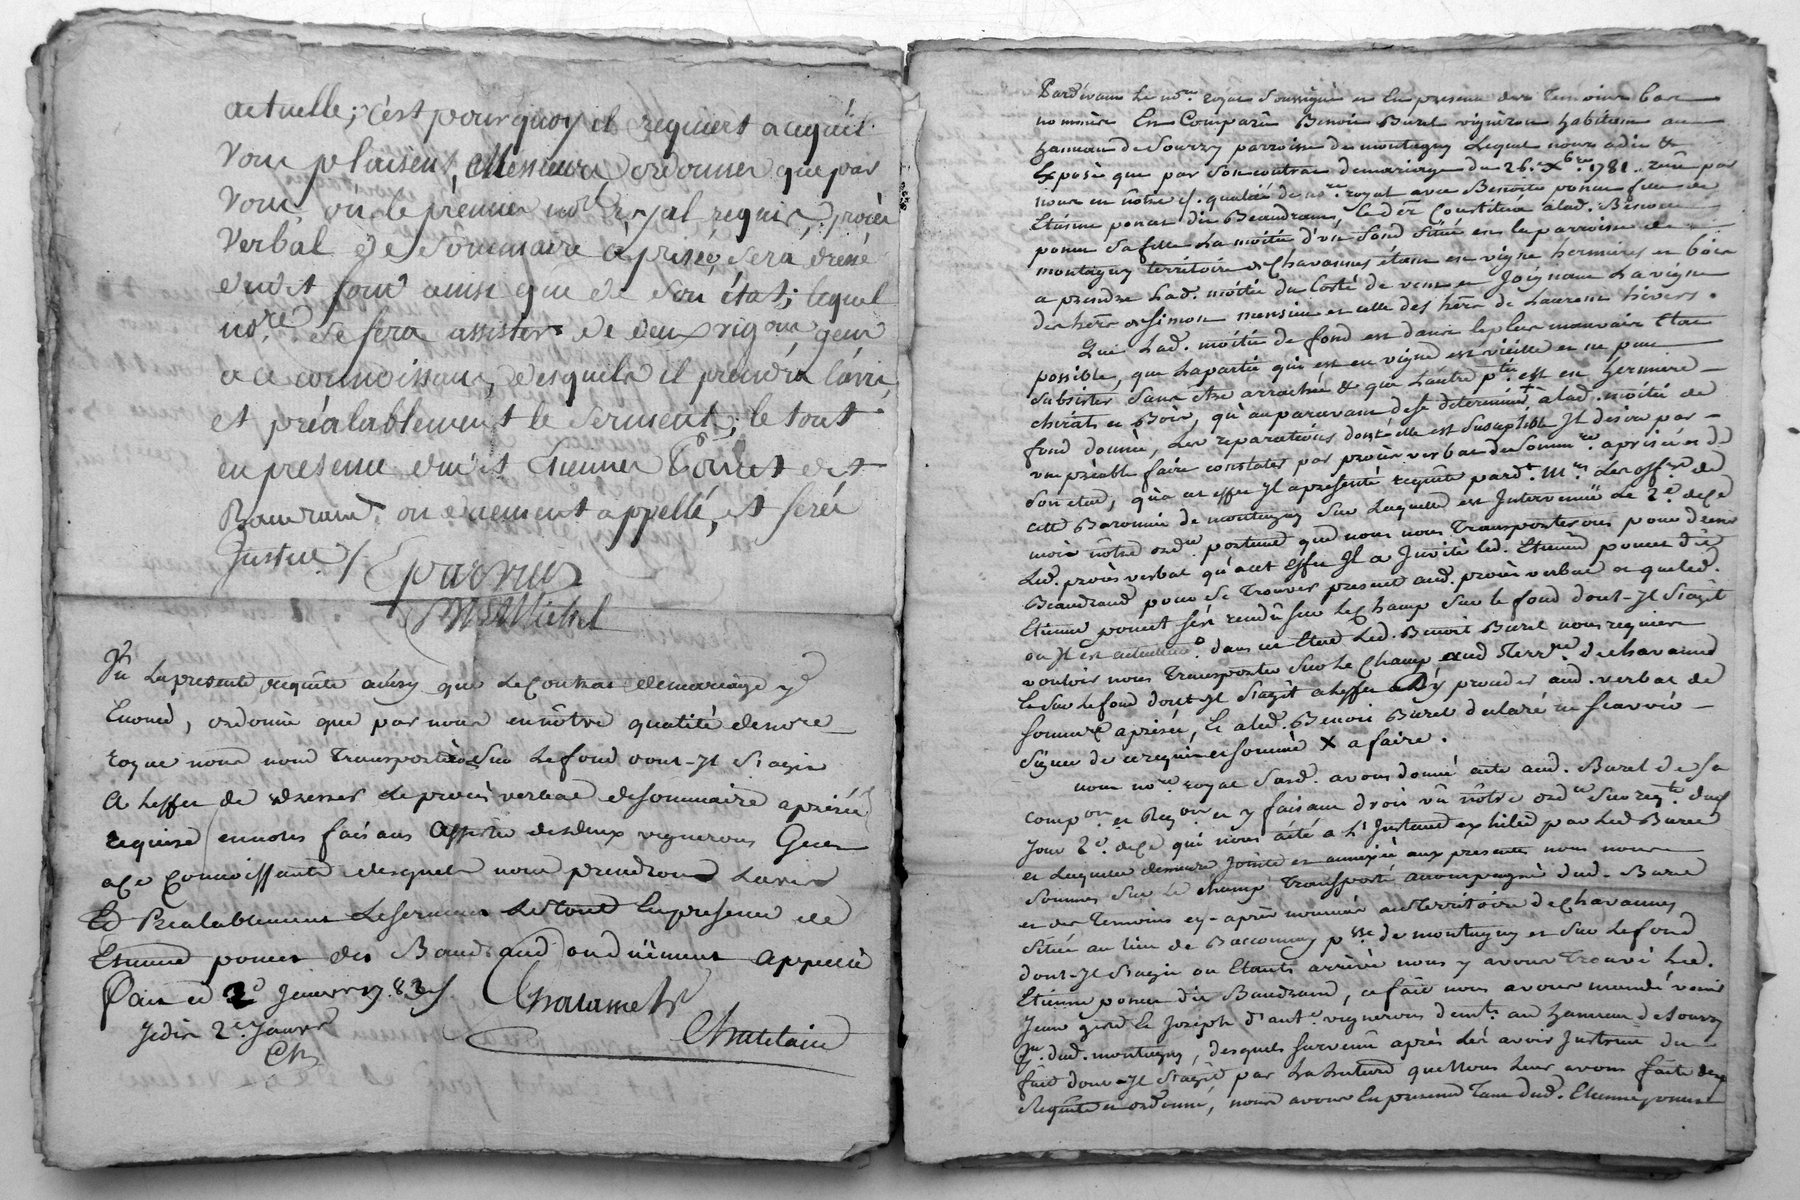 actuelle; c'est pourquoy il requiert a ce qu'il
Vous plaisent, Messieurs, ordonner que par
Vous, ou le prémier nore royal requis, procès
Verbal de Sommaire apprisée sera dréssé
dudit fond ainsi que de son état; lequel
nore. se fera assister de deux vignerons, gens
a ce connoissans, desquels il prendra l'avis,
et préalablement le serment; le tout
en presence dudit Etienne Poncet dit
Baudrand, ou dûement appellé, et feréz
Justice /.
Vu la presente requête ainsy que le Contrat de mariage y
Enoncé, ordonne que par nous en nôtre qualité de nore
royal nous nous transporterons sur le fond dont-Il s'agit
a l'effet de dresser le procès verbal de sommaire aprisée
requise, en nous faisans assister de deux vignerons Gens
a Ce Connoissants desquels nous prendrons l'avis
Et Préalablement le serment Le tout En presence de
Etienne poncet dit Baudrand ou dûëment appellé
fait ce 2e Janvier 1783 /.
Chalamel
Chatelain
Je dis 2e. Janvr
Ch
Pardevant le nore. royal soussigné et En presence des temoins bas
nommés En Comparû Benoit Buret vigneron habitant au
hameau de Sourzy parroisse de montagny Lequel nous a dit &
Exposé que par son contrat de mariage du 26e. Xbre. 1781. reçû par
nous en nôtre d. qualité de nore royal avec Benoite poncet fille de
Etienne poncet dit Beaudrand, le der Constitua a lad. Benoite
poncet sa fille La moitié d'un fond situé en la parroisse de
montagny territoire de Chavannes étant en vigne hermures et bois
a prendre Lad. moitié du Costé de vent et Joignant La vigne
des hérs de Simon mensieu et celle des hérs de Laurent hivers.
Que Lad. moitié de fond est dans le plus mauvais Etat
possible, que la partie qui est en vigne est vieille et ne peut
subsister sans être arrachée & que l'autre ptie est en hermure
chirats et Bois, qu'auparavant de se déterminer a lad. moitié de
fond donnée, Les reparations dont elle est susceptible Il désire par
un préable faire constater par procès verbal de Sommre aprisée de
son etat, qu'a cet effet Il a presenté requête pardt. Mrs. Les offrs de
cette Baronnie de montagny sur Laquelle est Intervenuë Le 2e. de Ce
mois nôtre ordce portant que nous nous transporterons pour dresser
Led. procès verbal qu'a cet effet Il a Invité led. Etienne poncet dit
Beaudrand pour se trouver present aud. procès verbal et que led.
Etienne poncet s'est rendû sur le Champ sur le fond dont-Il s'agit
ou Il est actuellemt. dans cet Etat Led. Benoit Buret nous requiert
vouloir nous transporter sur le Champ aud. Terrre de chavannes
Et sur le fond dont-Il s'agit a l'effet d'y proceder aud. verbal de
sommre aprisée, Et a led. Benoit Buret declaré ne sçavoir
signer de ce requis et sommé X a faire.
nous nore royal susd. avons donné acte aud. Buret de sa
compon et Reqon et y faisant droit vû nôtre ordce sur reqte du
jour 2e. de Ce qui nous a été a L'Instant exhibée par Led Buret
et Laquelle demeure Jointe et annexée aux presentes nous nous
sommes sur le champ Transporté accompagné dud. Buret
et des temoins cy-après nommés au territoire de Chavannes
situé au lieu de Bacconnay psse de montagny et sur le fond
dont-Il s'agit ou Etants arrivé nous y avons trouvé Led.
Etienne poncet dit Baudrand, ce fait nous avons mandé venir
Jean & Joseph vignerons demts. au hameau de Sourzy
pse. dud. montagny, desquels survenû après les avoir Instruit du
fait dont-Il s'agit par La Lecture que Nous Leur avons faite des
Requête et ordonnce, nous avons En presence tant dud. Etienne poncet